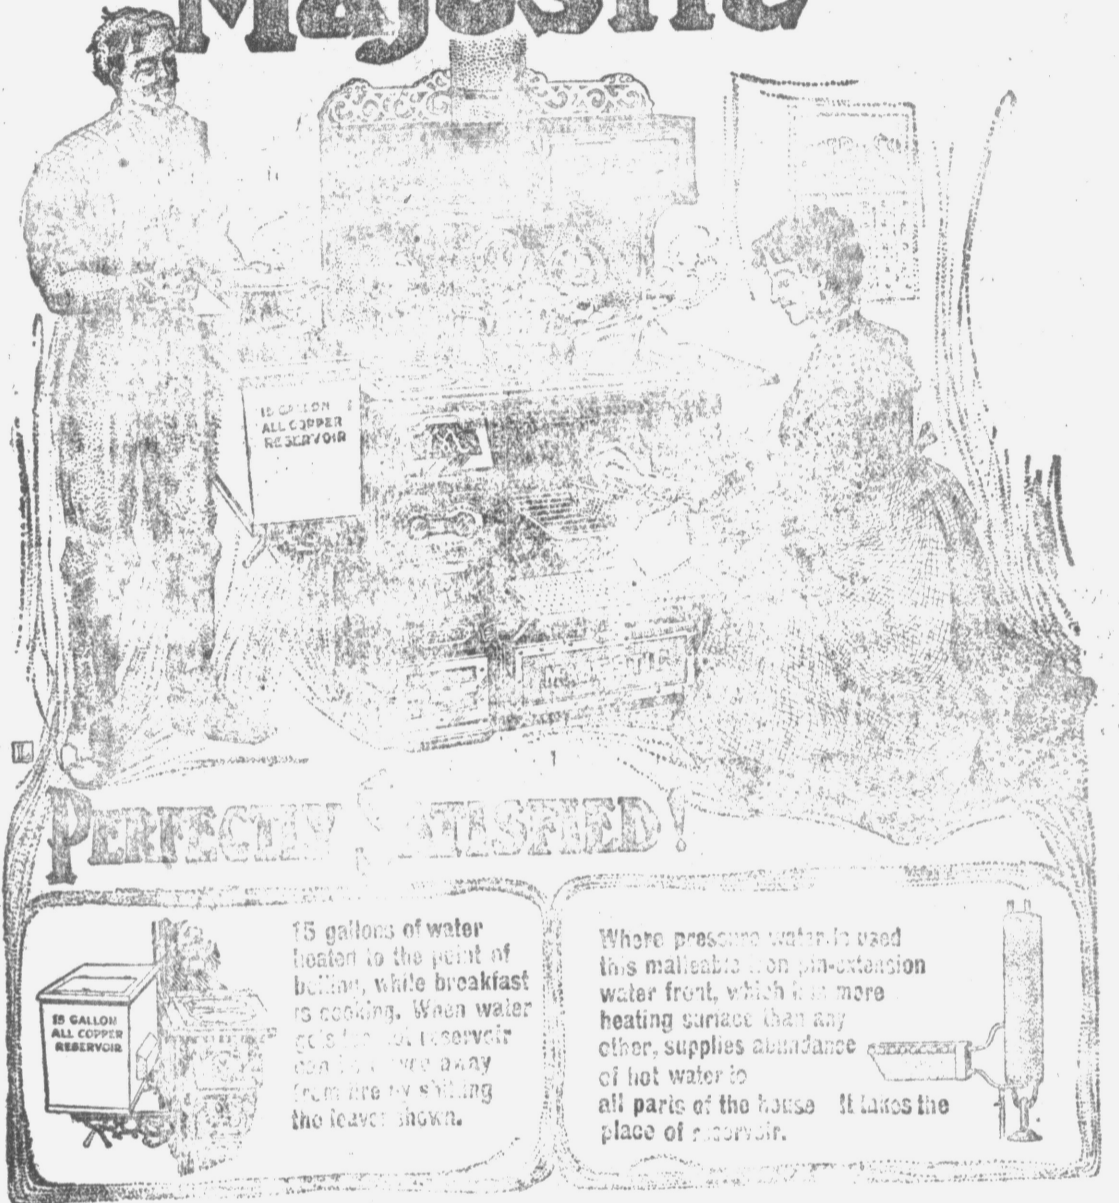 Majestic
15 GALLON
ALL COPPER
RESERVOIR
PERFECTLY SATISFIED!
15 gallons of water
heated to the point of
boiling, while breakfast
is cooking. When water
gets too hot reservoir
away
from fire by shifting
the leaver shown.
15 GALLON
ALL COPPER
RESERVOIR
Where pressure water is used
this malleable iron pin-extension
water front, which has more
heating surface than any
other, supplies abundance
of hot water to
all parts of the house It takes the
place of reservoir.